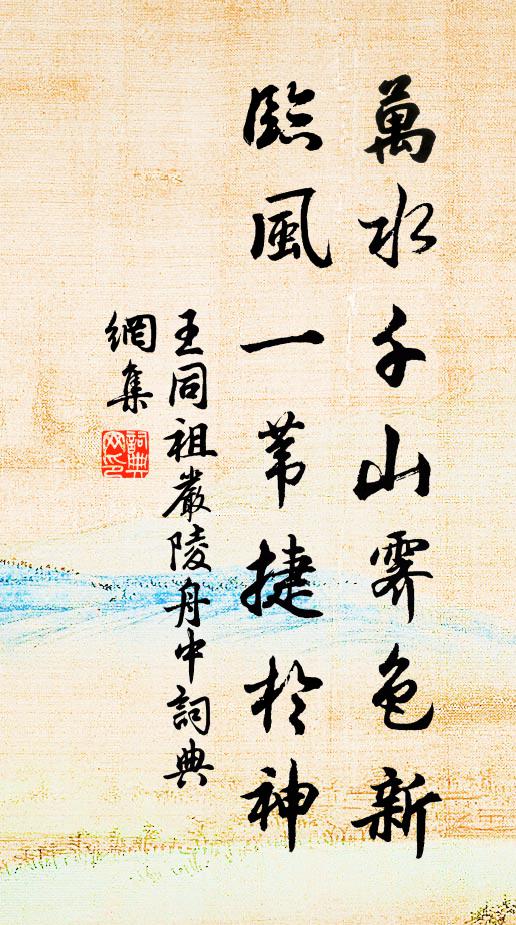 萬水千山霽色新
臨風一葦捷於神
王同祖嚴陵舟中詞典
網集
詞典
网印